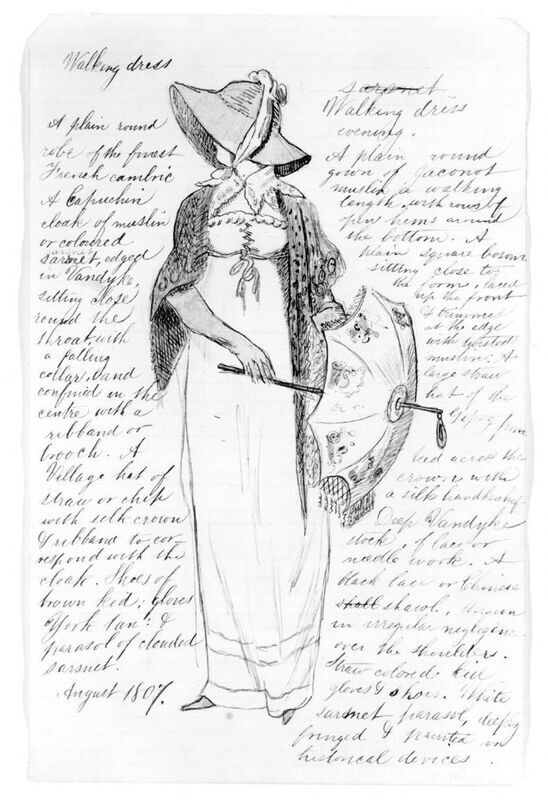 Walking dress
A plain round
robe of the finest
French cambric
A Capuchin
cloak of muslin
or coloured
sarsnet
sarsnet, edged
in Vandyke,
sitting close
round the
throat, with
a falling
collar, and
confined in the
centre with a
ribband or
brooch. A
Village hat of
straw or chip
with silk crown
& ribband to cor-
respond with the
cloak. Shoes of
brown kid; gloves
York tan; &
parasol of clouded
sarsnet.
August 1807.
sarsnet
Walking dress
evening.
A plain round
gown of Jaconot
muslin, a walking
length, with rows of
open hems around
the bottom. A
plain square bosom
sitting close to
the form, laced
up the front
& trimmed
at the edge
with
muslin. A
large straw
hat of the
tied across the
crown with
a silk handkerchief
Deep Vandyke
stock, of lace or
needle work. A
black lace or Chinese
shall shawl, thrown
in irregular negligence
over the shoulders.
Straw colored kid
gloves & shoes. White
sarsnet parasol, deeply
fringed & painted in
historical devices.